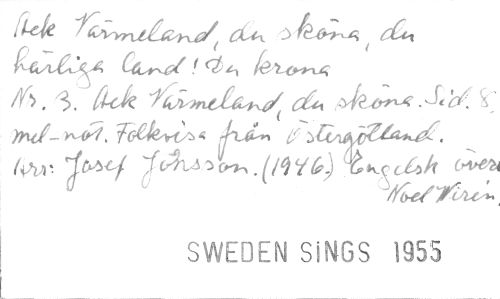 Ack Värmeland, du sköna, du
härliga land! Du krona
Nr. 3. Ack Värmeland, du sköna. Sid. 8.
mel-not. Folkvisa från Östergötland.
Arr: Josef Jonsson. (1946.) Engelsk övers
Noel Wirén.
SWEDEN SiNGS 1955